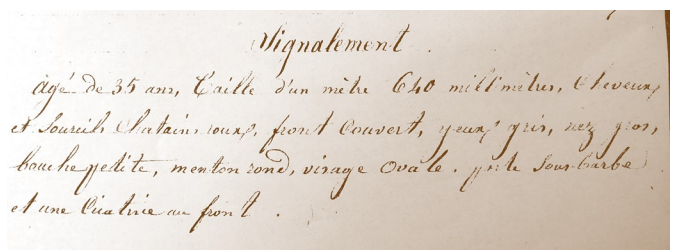 Signalement
âgé de 35 ans, Taille d'un mètre 640 millimètres, Cheveux
et Sourcils Chatains roux, front Couvert, yeux gris, nez gros,
bouche petite, menton rond, visage Ovale. porte Sous-barbe
et une Cicatrice au front.